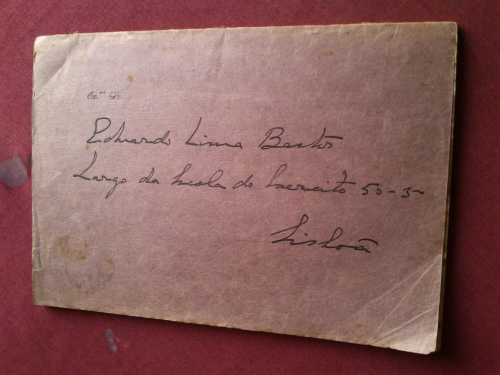 Eduardo Lima Bastos
Largo da Escola do Exercito 50-3º
Lisboa